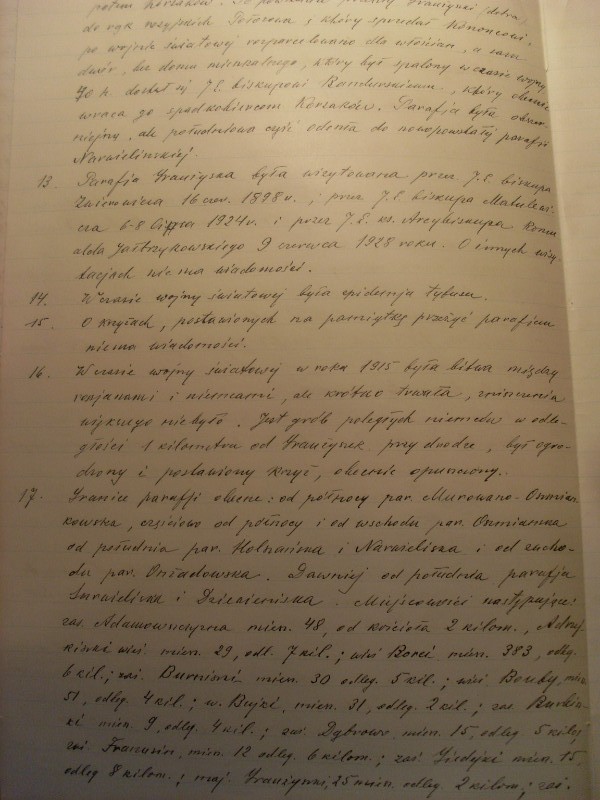 do rąk rosyjskich Potomowa, który sprzedał Kononowi,
po wojnie światowej rozparcelowano dla włościan, a sam
dwór, bez domu mieszkalnego, który był spalony w czasie wojny,
70 h. dostał się J.E. biskupowi Bandurskiemu, który obecnie
wraca go spadkobiercom Korsaków. Parafja była
ale południowa część odeszła do nowopowstałej parafji
Narwieliskiej.
13. Parafja Graużyska była wizytowana przez J.E. biskupa
Zwierowicza 16 czer. 1898 r.; przez J.E. biskupa Matulewi-
cza 6-8 lipca 1924 r. i przez J.E. ks. Arcybiskupa Romu
alda Jałbrzykowskiego 9 czerwca 1928 roku. O innych wizy
tacjach niema wiadomości.
14. W czasie wojny światowej była epidemja tyfusu.
15. O krzyżach, postawionych na pamiątkę przeżyć parafian
niema wiadomości.
16. W czasie wojny światowej w roku 1915 była bitwa między
rosjanami i niemcami, ale krótko trwała, zniszczenia
większego nie było. Jest grób poległych niemców w odle-
głości 1 kilometra od Graużyszek przy drodze, był ogro-
dzony i postawiony krzyż, obecnie opuszczony.
17. Granice parafji obecne: od północy par. Murowano-Oszmian-
kowska, częściowo od północy i od wschodu par. Oszmianska
od południa par. Holszańska i Narwieliska i od zacho-
du par. Onżadowska. Dawniej od południa parafja
Surwieliska i Dziewieniska. Miejscowości następujące:
zaś. Adamowszczyzna mien. 48, od kościoła 2 kilom.,
wieś mien. 29, odl. 7 kil.; wieś Borci mien. 383, odleg.
6 kil.; zaś. Burniszki mien. 30 odleg. 5 kil.; wieś mien.
51, odleg. 4 kil.; w. Bujki, mien. 31, odleg. 2 kil.; zaś.
mien. 9, odleg. 4 kil.; zaś. Dąbrowo, mien. 15, odleg. 5 kil.;
zaś. Francusin, mien. 12 odleg. 6 kilom.; zaś. Giedejki mien. 15,
odleg. 8 kilom.; maj. Graużyszki, 25 mien. odleg. 2 kilom.; zaś.